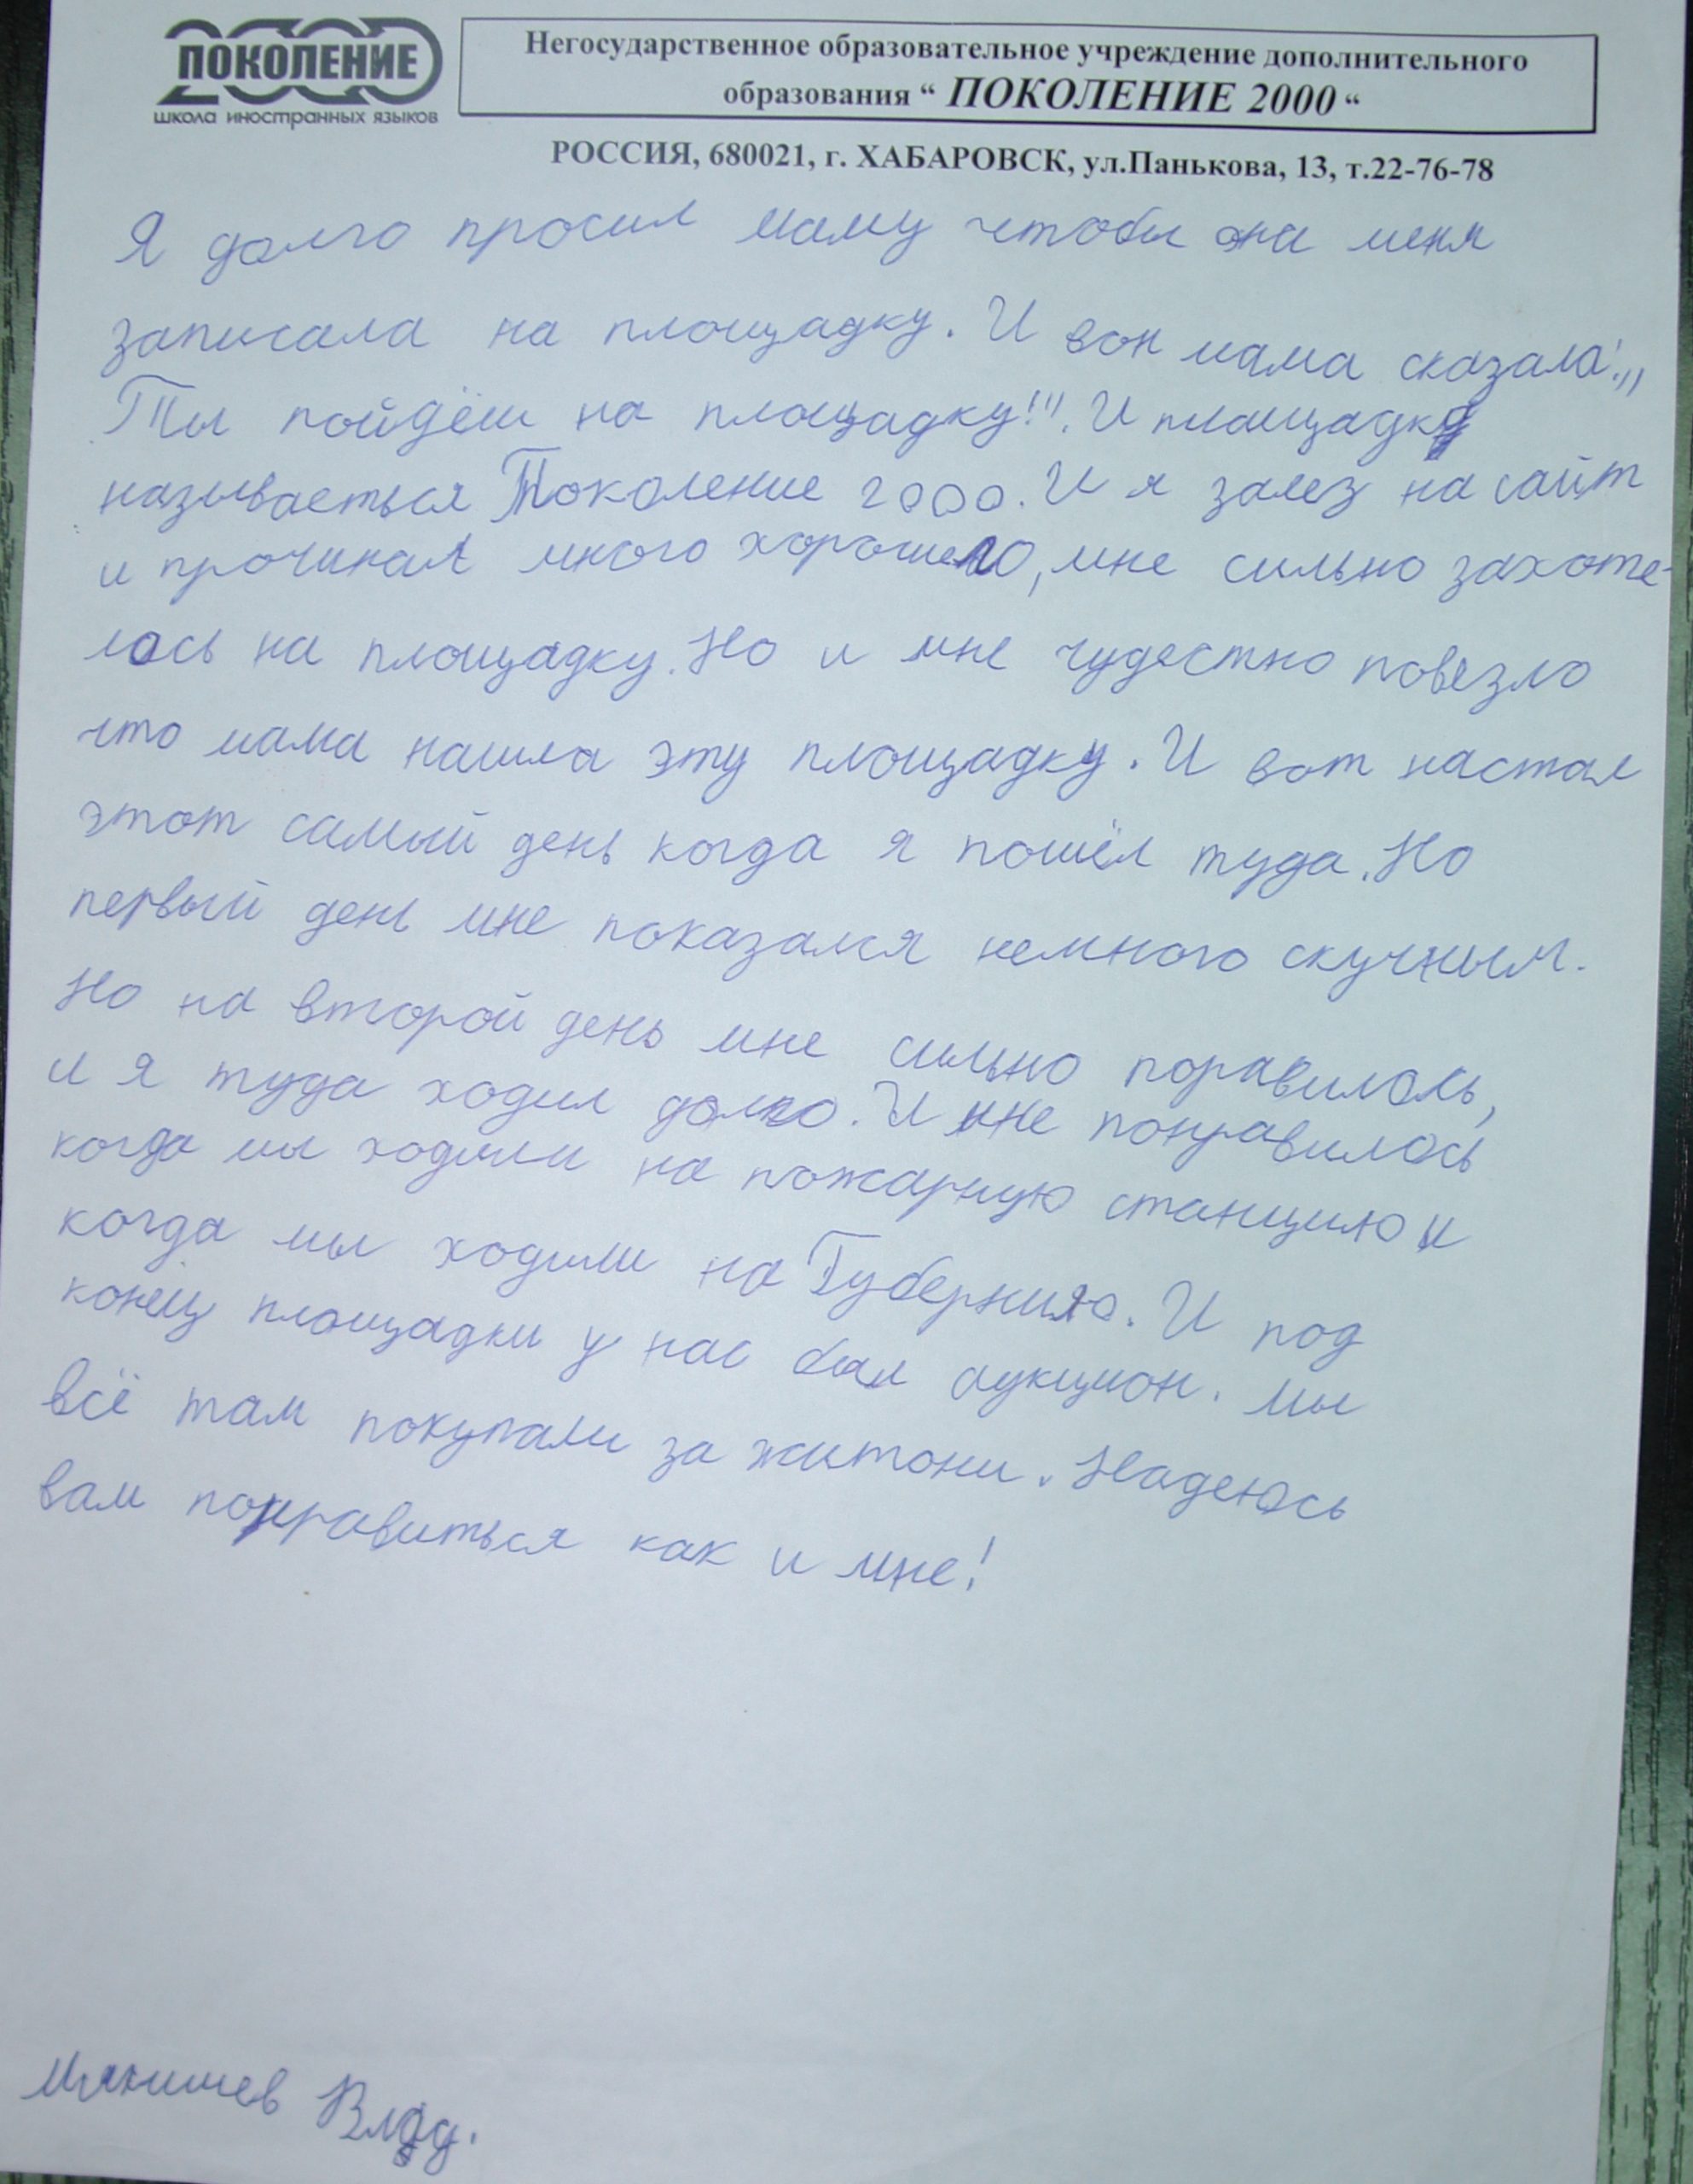 2000
ПОКОЛЕНИЕ
школа иностранных языков
Негосударственное образовательное учреждение дополнительного
образования “ ПОКОЛЕНИЕ 2000 “
РОССИЯ, 680021, г. ХАБАРОВСК, ул.Панькова, 13, т.22-76-78
Я долго просил маму чтобы она меня
записала на площадку. И вон мама сказала:„
Ты пойдёш на площадку!". И площадка
называеться Поколение 2000. И я залез на сайт
и прочинал много хорошего, мне сильно захоте-
лось на площадку. Но и мне чудестно повезло
что мама нашла эту площадку. И вот настал
этот самый день когда я пошёл туда. Но
первый день мне показался немного скучным.
Но на второй день мне сильно поравилось,
и я туда ходил долго. И мне понравилось
когда мы ходили на пожарную станцию и
когда мы ходили на Губернию. И под
конец площадки у нас был аукцион. Мы
всё там покупали за житони. Надеюсь
вам понравиться как и мне!
Влад.